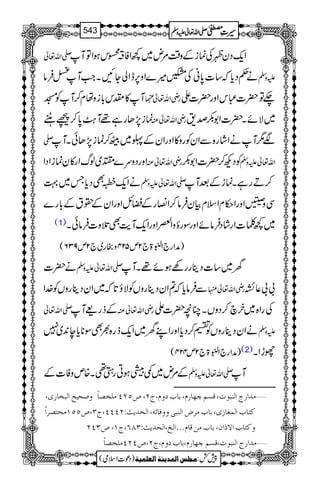 سیرتِ مصطفیٰ صلی اللہ تعالیٰ علیہ وسلم 543
ایک دن ظہر کی نماز کے وقت مرض میں کچھ افاقہ محسوس ہوا تو آپ صلی اللہ تعالیٰ
علیہ وسلم نے حکم دیا کہ سات پانی کی مشکیں میرے اوپر ڈالی جائیں۔ جب آپ غسل فرما
چکے تو حضرت عباس اور حضرت علی رضی اللہ تعالیٰ عنہما آپ کا مقدس بازو تھام کر آپ کو مسجد
میں لائے۔ حضرت ابوبکر صدیق رضی اللہ تعالیٰ عنہ نماز پڑھا رہے تھے آہٹ پا کر پیچھے ہٹنے
لگے مگر آپ نے اشارہ سے ان کو روکا اور ان کے پہلو میں بیٹھ کر نماز پڑھائی۔ آپ صلی
اللہ تعالیٰ علیہ وسلم کو دیکھ کر حضرت ابوبکر رضی اللہ تعالیٰ عنہ اور دوسرے مقتدی لوگ ارکان نماز ادا
کرتے رہے۔ نماز کے بعد آپ صلی اللہ تعالیٰ علیہ وسلم نے ایک خطبہ بھی دیا جس میں بہت
سی وصیتیں اور احکام اسلام بیان فرما کر انصار کے فضائل اور ان کے حقوق کے بارے
میں کچھ کلمات ارشاد فرمائے اور سورۂ والعصر اور ایک آیت بھی تلاوت فرمائی۔ (1)
(مدارج النبوۃ ج۲ ص۴۲۵ و بخاری ج۲ ص۶۳۹)
گھر میں سات دینار رکھے ہوئے تھے۔ آپ صلی اللہ تعالیٰ علیہ وسلم نے حضرت
بی بی عائشہ رضی اللہ تعالیٰ عنہا سے فرمایا کہ تم ان دیناروں کو لاؤ تاکہ میں ان دیناروں کو خدا
کی راہ میں خرچ کردوں۔ چنانچہ حضرت علی رضی اللہ تعالیٰ عنہ کے ذریعے آپ صلی اللہ تعالیٰ
علیہ وسلم نے ان دیناروں کو تقسیم کر دیا اور اپنے گھر میں ایک ذرہ بھر بھی سونا یا چاندی نہیں
چھوڑا۔ (2) (مدارج النبوۃ ج۲ ص۴۲۴)
آپ صلی اللہ تعالیٰ علیہ وسلم کے مرض میں کمی بیشی ہوتی رہتی تھی۔ خاص وفات کے
مدارج النبوت، قسم چہارم، باب دوم، ج۲، ص۴۲۵ ملخصاً وصحیح البخاری،
کتاب المغازی، باب مرض النبی ووفاتہ، الحدیث: ۴۴۴۲، ج۳، ص۱۵۵ مختصراً
وکتاب الاذان، باب من قام...الخ، الحدیث: ۶۸۳، ج۱، ص۲۴۳
مدارج النبوت، قسم چہارم، باب دوم، ج۲، ص۴۲۴ ملخصاً
پیش کش: مجلس المدینۃ العلمیۃ (دعوتِ اسلامی)